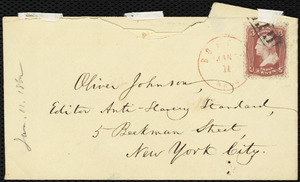 Oliver Johnson,
Editor Anti-Slavery Standard,
5 Beekman Street,
New York City.
JAN
11
Jan. 11.